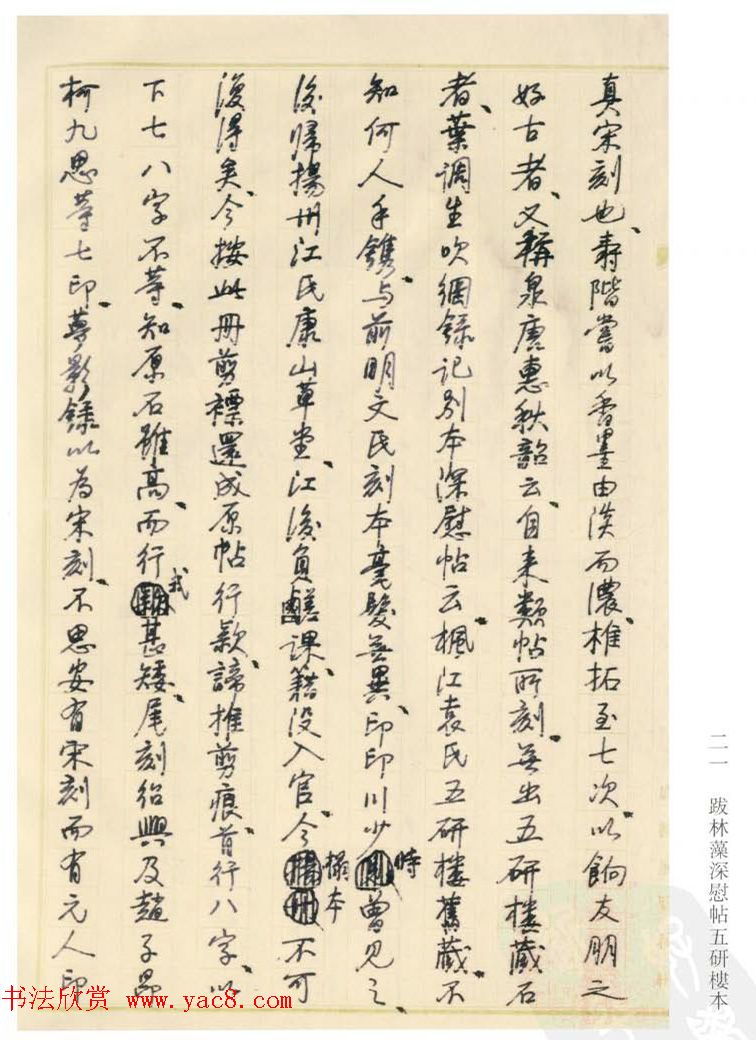 真宋刻也、壽階嘗以香墨由淡而濃、椎拓至七次、以餉友朋之
好古者、又稱泉唐惠秋韶云、自来類帖所刻、無出五研樓藏石
者、葉調生吹網錄記別本深慰帖云、楓江袁氏五研樓舊藏、不
知何人手鐫、与前明文氏刻本毫髮無異、印印川少時曾見之、
後歸揚州江氏康山草堂、江後負鹺課、籍没入官、今搨本不可
復得矣、今按此册剪褾還成原帖行款、諦推剪痕、首行八字、以
下七八字不等、知原石雖高、而行我甚矮、尾刻紹興及趙子昂
柯九思等七印、夢影錄以為宋刻、不思安有宋刻而有元人印
二一 跋林藻深慰帖五研樓本
书法欣赏 www.yac8.com